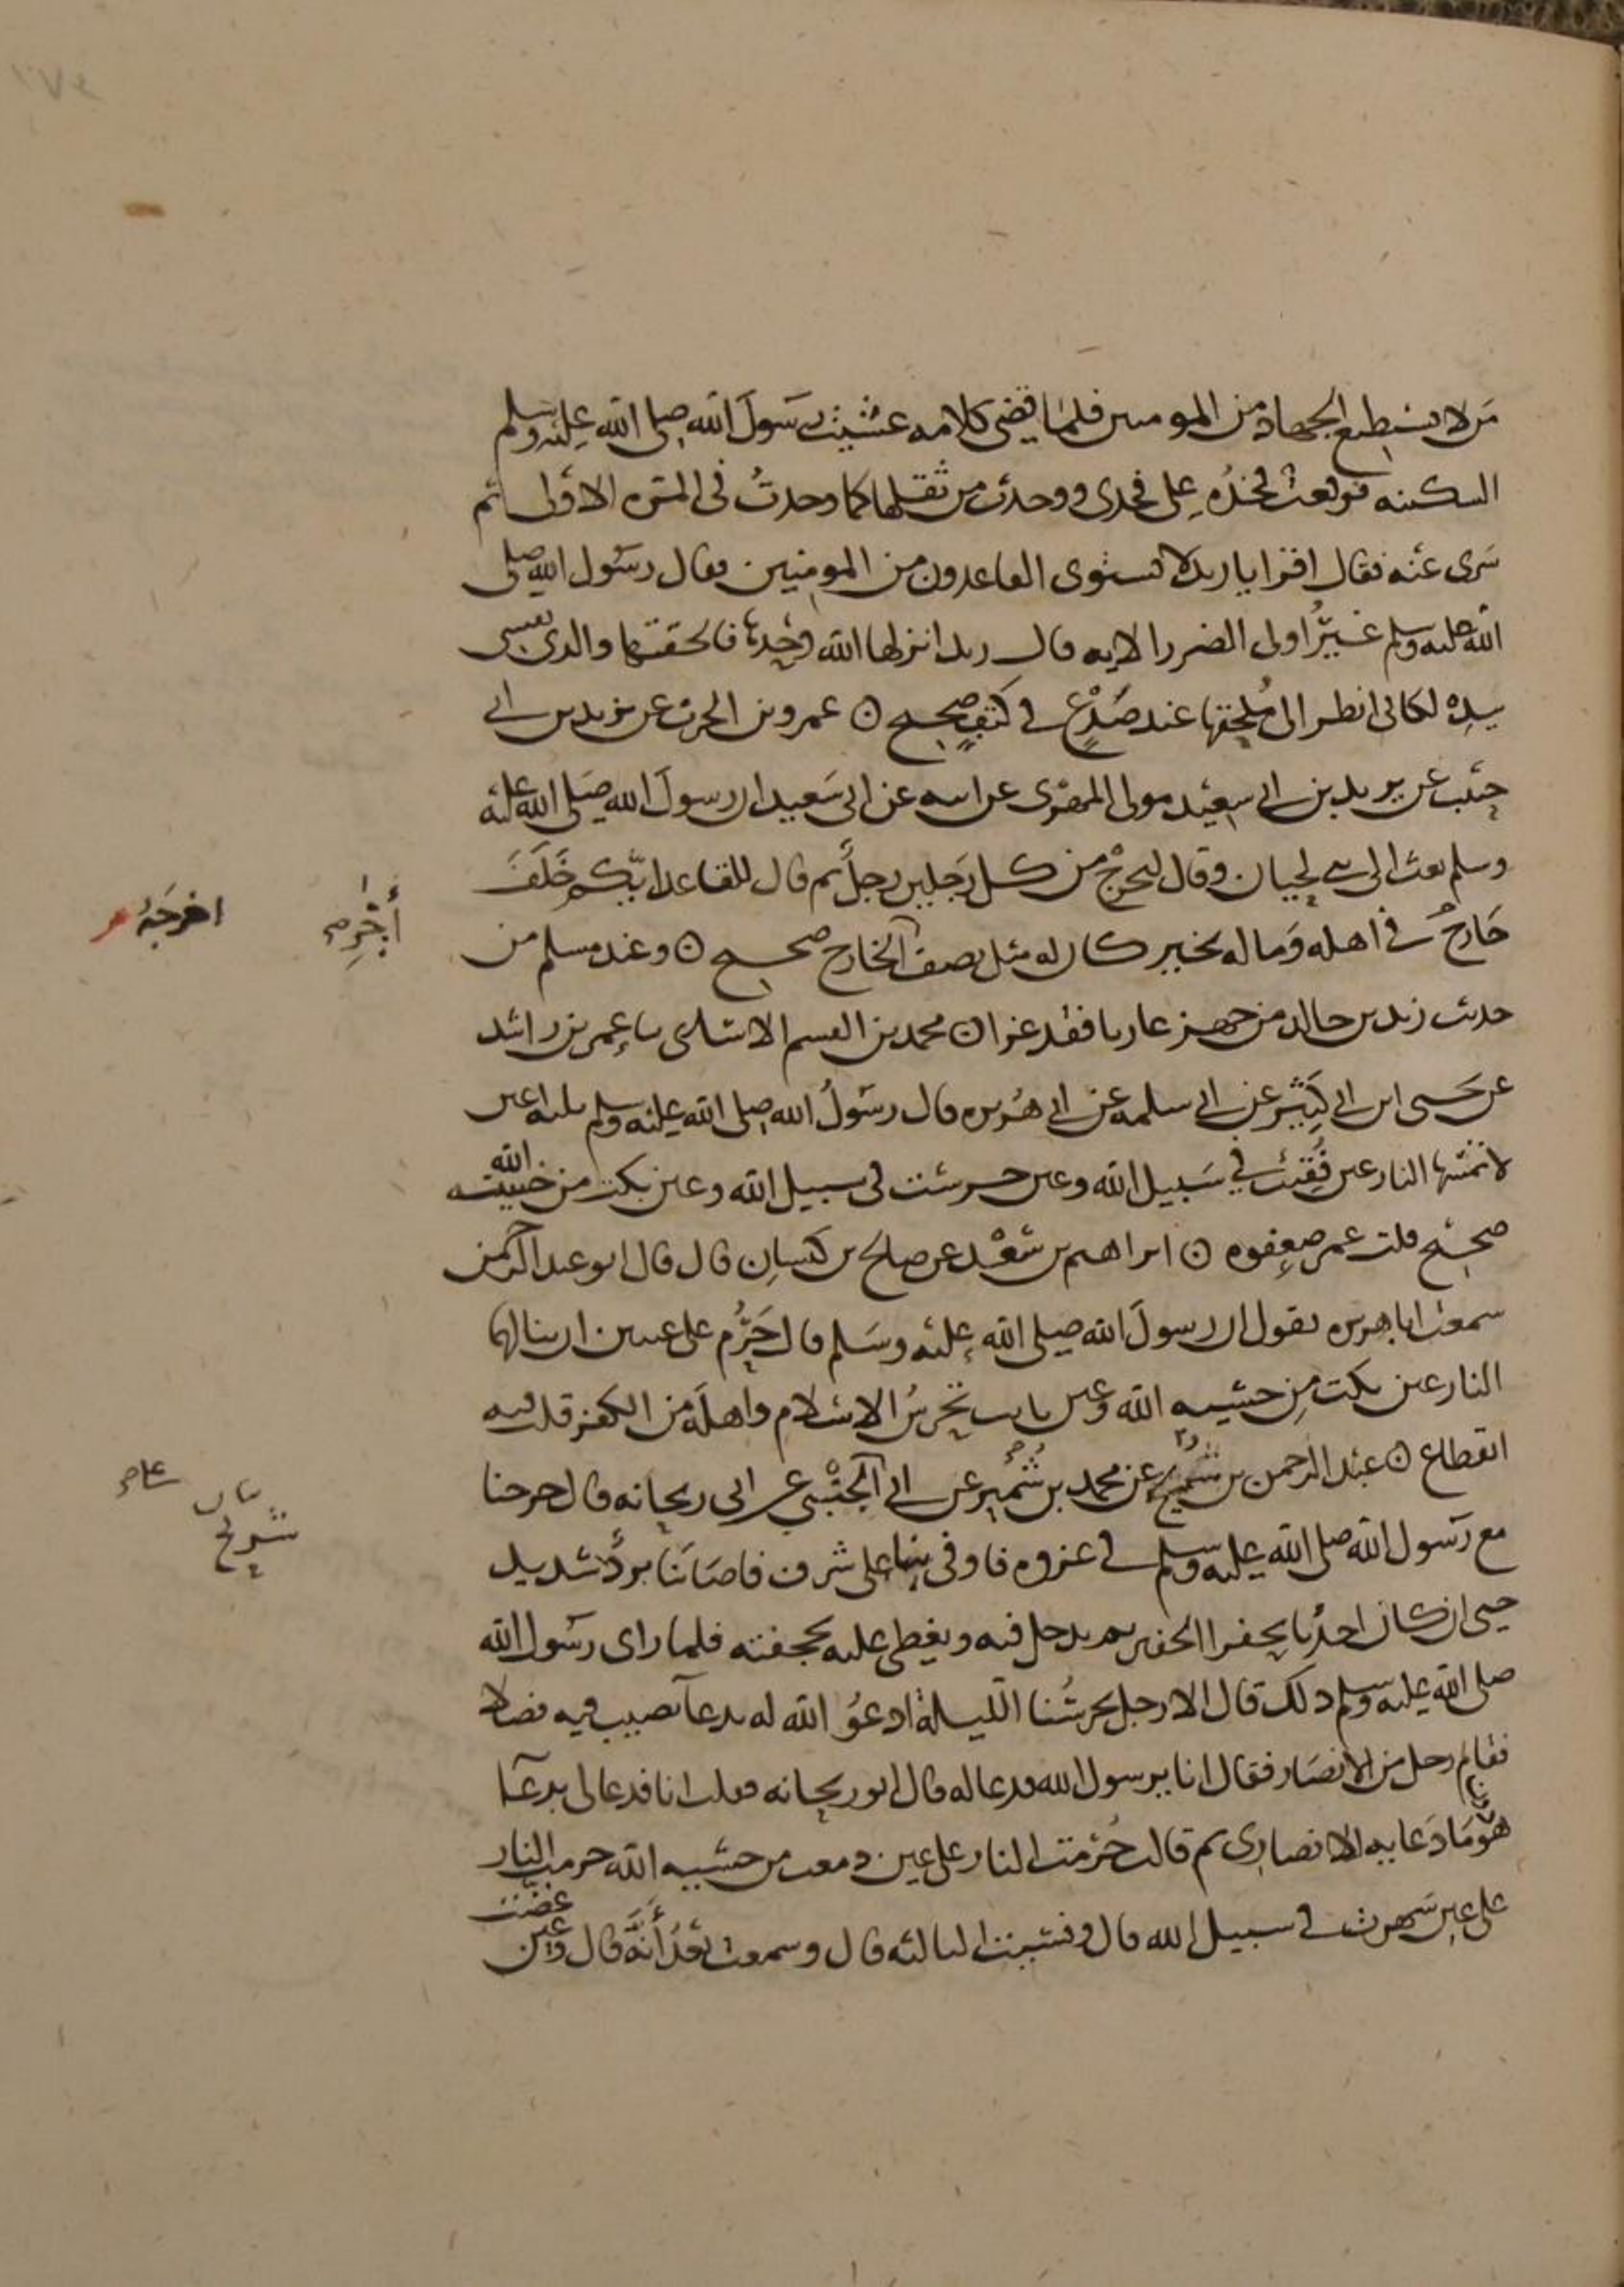 من لا يستطيع الجهاد من المومنين فلما قضى كلامه غشيت رسول الله صلى الله عليه وسلم
السكينه فوقعت فخذه على فخذى ووجدت من ثقلها كما وجدت فى المره الاولى ثم
سرى عنه فقال اقرا يا زيد لا يستوى القاعدون من المومنين فقال رسول الله صلى
الله عليه وسلم غير اولى الضرر الايه قال زيد انزلها الله وحدها فالحقتها والذى نفسى
بيده لكانى انظر الى ملحقها عند صدع في كتف صحيح ⊙ عمرو بن الحرث عن يزيد بن ابي
حبيب عن يزيد بن ابي سعيد مولى المهرى عن ابيه عن ابى سعيد ان رسول الله صلى الله عليه
وسلم بعث الى بني لحيان وقال ليخرج من كل رجلين رجل ثم قال للقاعد ايكم خلف
خارج في اهله وماله بخير كان له مثل نصف الخارج صحيح ⊙ وعند مسلم من
حديث زيد بن خالد من جهز غازيا فقد غزا ⊙ محمد بن القسم الاسدى نا عمر بن راشد
عن يحيى ابن ابي كثير عن ابي سلمه عن ابي هريره قال رسول الله صلى الله عليه وسلم ثلثه اعين
لا تمسها النار عين فقئت في سبيل الله وعين حرست فى سبيل الله وعين بكت من خشية الله
صحيح قلت عمر ضعفوه ⊙ ابراهيم بن سعد عن صالح بن كيسان قال قال ابو عبد الرحمن
سمعت ابا هريره يقول ان رسول الله صلى الله عليه وسلم قال حرم على عينين ان ينالهما
النار عين بكت من خشيه الله وعين باتت تحرس الاسلام واهله من الكفر قلت فيه
انقطاع ⊙ عبد الرحمن بن شريح عن محمد بن شمير عن ابي الجنبي عن ابى ريحانه قال خرجنا
مع رسول الله صلى الله عليه وسلم في غزوه فاوفى بنا على شرف فاصابنا برد شديد
حتى ان كان احدنا يحفر الحفير ثم يدخل فيه ويغطى عليه بحجفته فلما راى رسول الله
صلى الله عليه وسلم ذلك قال الا رجل يحرسنا الليلة ادعو الله له بدعا يصيب فيه فضلا
فقام رجل من الانصار فقال انا يرسول الله فدعا له قال ابو ريحانه فقلت انا فدعا لى بدعا
هو ما دعا به الانصارى ثم قال حرمت النار على عين دمعت من خشيه الله حرمت النار
على عين سهرت في سبيل الله قال ونسيت الثالثه قال وسمعت بعد أنه قال وعين غضت
أجره
اخرجه م
شريح